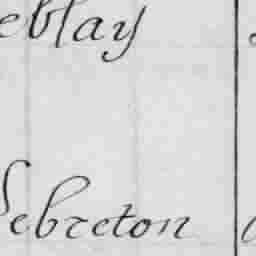 eblay
Lebreton